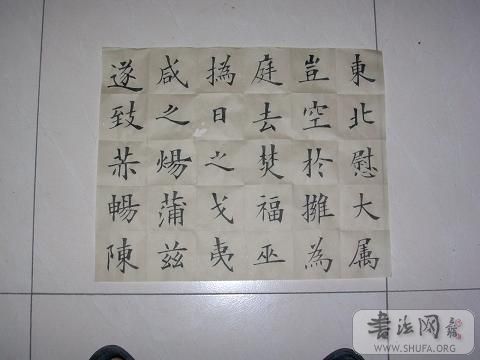 東北慰大属
豈空於擁為
庭去焚福巫
撝日之戈夷
咸之煬蒲兹
遂致暢陳
书法网
WWW.SHUFA.ORG